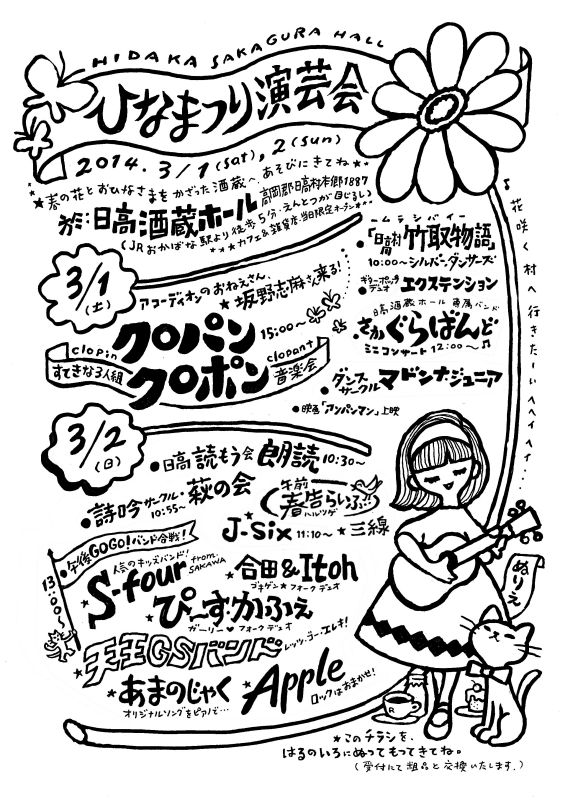 HIDAKA SAKAGURA HALL
ひなまつり演芸会
2014. 3/1(sat), 2(sun)
★春の花とおひなさまをかざった酒蔵へ、あそびにきてね★
日高酒蔵ホール
高岡郡日高村本郷1887
(JRおかばな駅より徒歩5分。えんとつが目じるし)
★★★カフェ&雑貨店、当日限定オープン★★★
♪花咲く村へ行きたーいヘヘイヘイ...
3/1(土)
アコーディオンのおねえさん、
★坂野志麻さん来る!
15:00〜
clopin clopant
クロパンクロポン
すてきな3人組
音楽会
ームラシバイー
・「日高村間 竹取物語」
10:00〜シルバーダンサーズ
・ギターポップデュオ エクステンション
日高酒蔵ホール専属バンド
・さかぐらばんど
ミニコンサート12:00〜♫
・ダンスサークル マドンナ・ジュニア
・映画「アンパンマン」上映
3/2(日)
・日高読もう会 朗読 10:30〜
・詩吟サークル・萩の会
10:55〜
午前
春告らいぶ!!
ハルツゲ
J-Six 11:10〜 ★三線
午後GOGO!バンド合戦!
13:00〜
人気のキッズバンド!
★S-four from SAKAWA
★合田&Itoh
ゴキゲン★フォークデュオ
★ぴーす・かふぇ
ガーリー♥フォークデュオ
★天王GSバンド
レッツ・ラ・エレキ!
★あまのじゃく
オリジナルソングをピアノで…
★Apple
ロックはおまかせ!
ぬりえ
★このチラシを、
はるのいろにぬってもってきてね。
(受付にて粗品と交換いたします。)